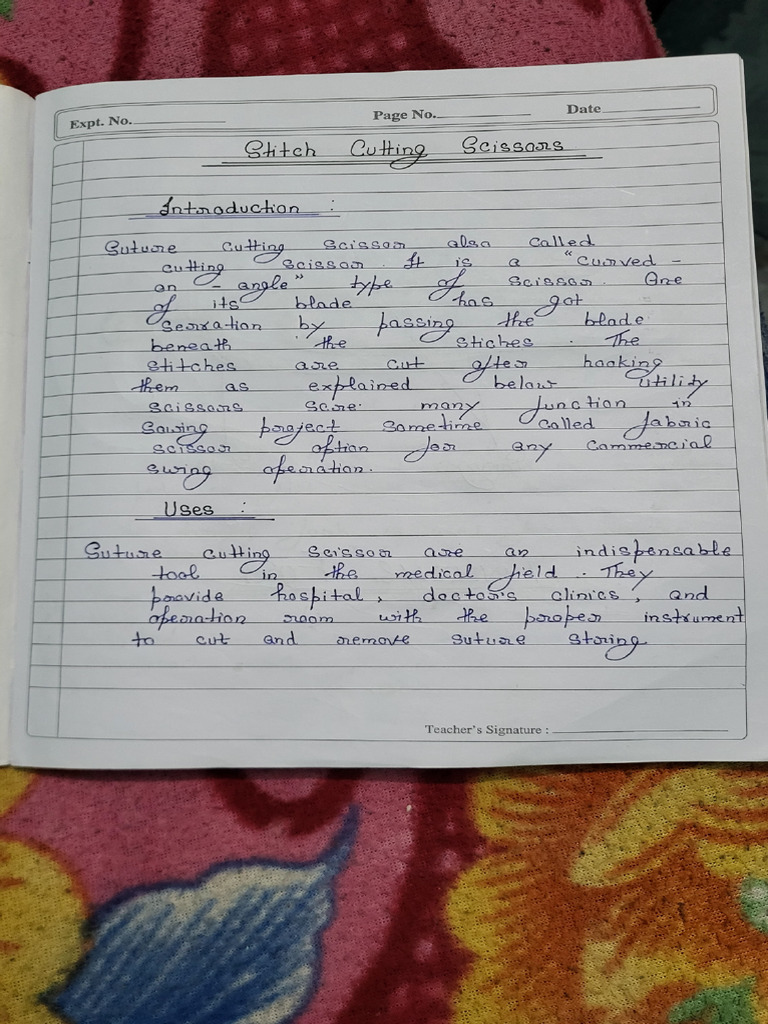 Expt. No.
Page No.
Date
Stitch Cutting Scissors
Introduction :
Suture cutting scissor also called
cutting scissor. It is a "Curved -
on - angle" type of scissor. One
of its blade has got
Serration by passing the blade
beneath the stiches. The
stitches are cut after hooking
them as explained below utility
scissors scare many function in
Sawing project sometime called fabric
scissor option for any commercial
swing operation.
Uses :
Suture cutting scissor are an indispensable
tool in the medical field. They
provide hospital, doctor's clinics, and
operation room with the proper instrument
to cut and remove suture string
Teacher's Signature :